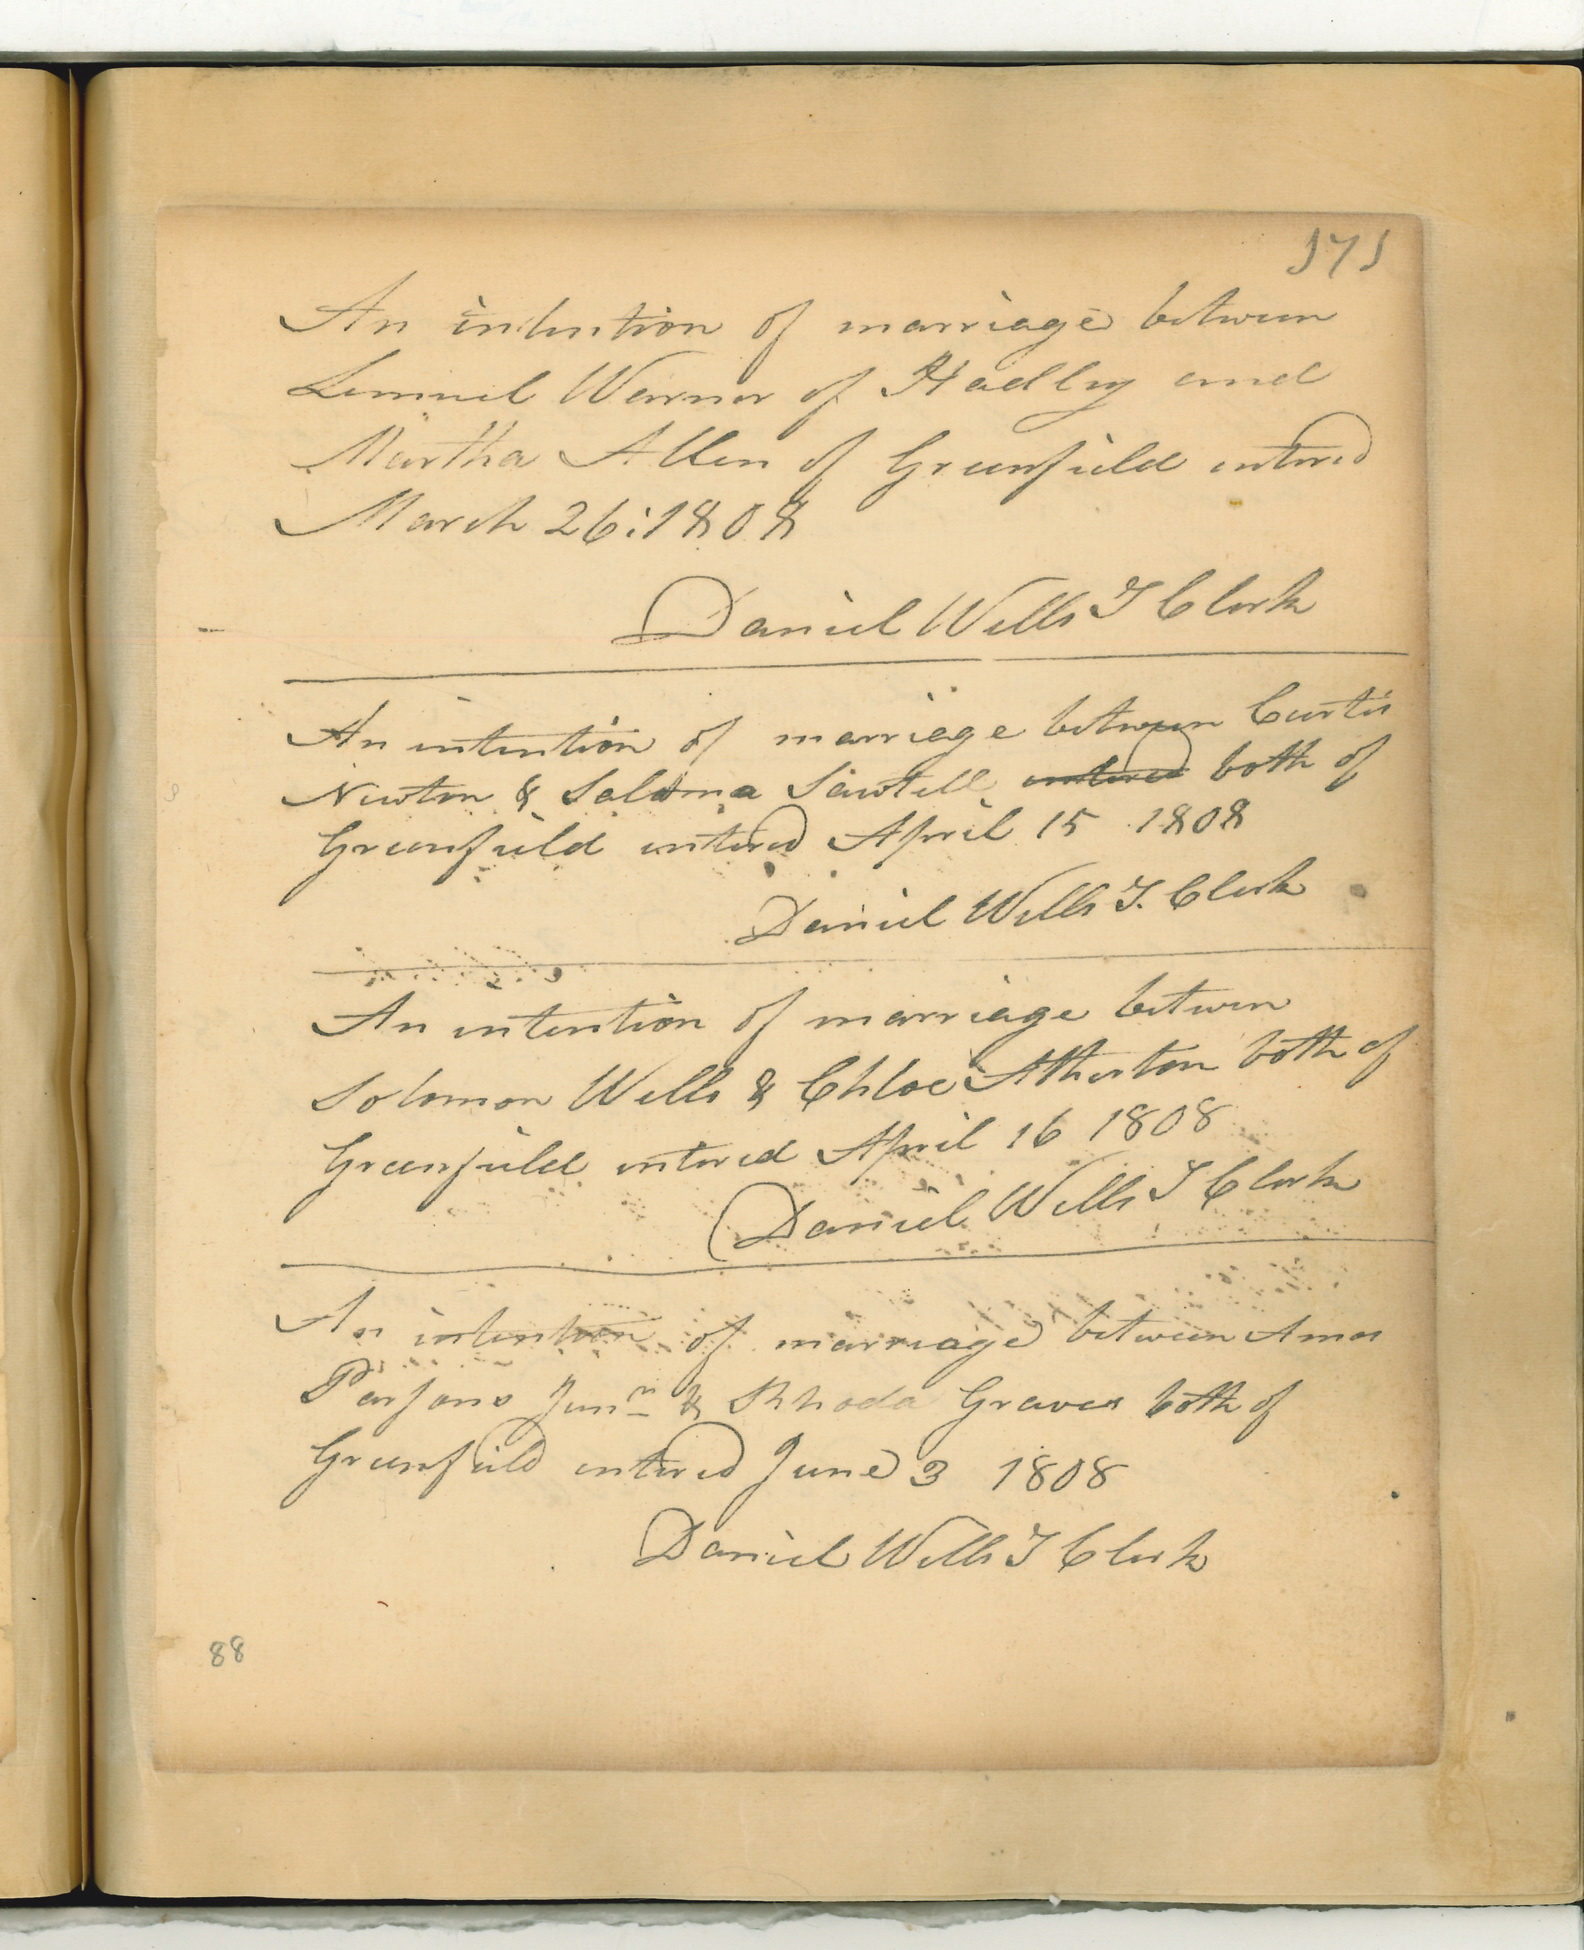 171
An intention of marriage between
Lemuel Warner of Hadley and
Martha Allen of Greenfield entered
March 26:1808
Daniel Wells T Clerk
An intention of marriage between Curtis
Newton & Saloma Sawtell entered both of
Greenfield entered April 15 1808
Daniel Wells T. Clerk
An intention of marriage betwen
Solomon Wells & Chloe Atherton both of
Greenfield entered April 16 1808
Daniel Wells T Clerk
An intention of marriage between Amos
Parsons Junr & Rhoda Graves both of
Greenfield entered June 3 1808
Daniel Wells T Clerk
88